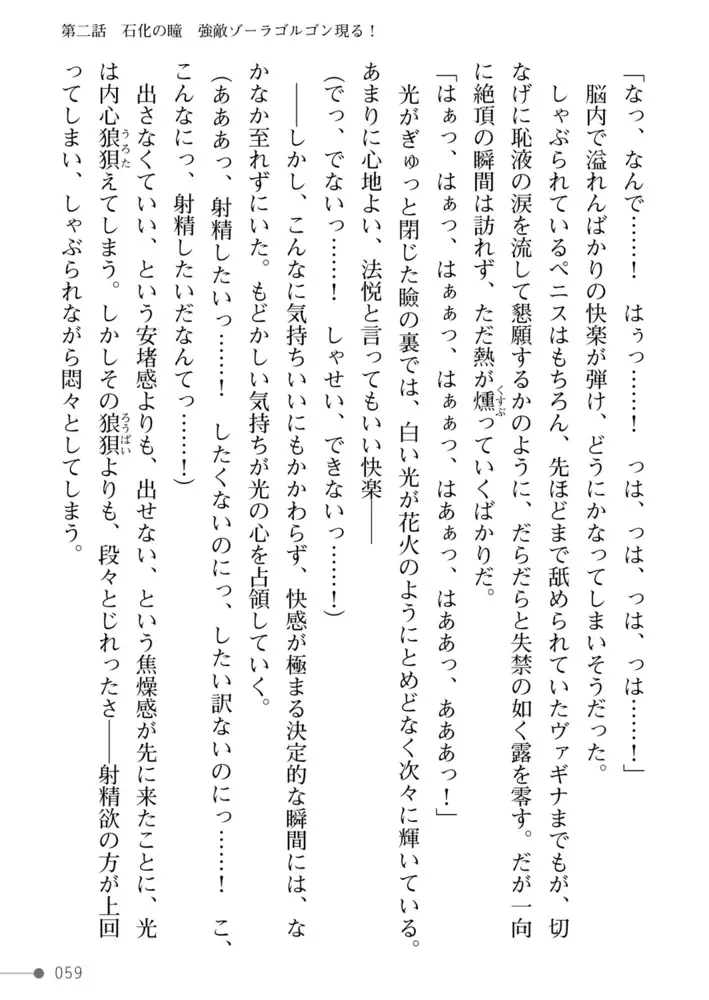 第二話　石化の瞳　強敵ゾーラゴルゴン現る！
「なっ、なんで……！　はぅっ……！　っは、っは、っは、っは……！」
　脳内で溢れんばかりの快楽が弾け、どうにかなってしまいそうだった。
　しゃぶられているペニスはもちろん、先ほどまで舐められていたヴァギナまでもが、切
なげに恥液の涙を流して懇願するかのように、だらだらと失禁の如く露を零す。だが一向
に絶頂の瞬間は訪れず、ただ熱が燻っていくばかりだ。
「はぁっ、はぁっ、はぁぁっ、はぁぁっ、はあぁっ、はああっ、あああっ！」
　光がぎゅっと閉じた瞼の裏では、白い光が花火のようにとめどなく次々に輝いている。
あまりに心地よい、法悦と言ってもいい快楽――
（でっ、でないっ……！　しゃせい、できないっ……！）
　――しかし、こんなに気持ちいいにもかかわらず、快感が極まる決定的な瞬間には、な
かなか至れずにいた。もどかしい気持ちが光の心を占領していく。
（あああっ、射精したいっ……！　したくないのにっ、したい訳ないのにっ……！　こ、
こんなにっ、射精したいだなんてっ……！）
　出さなくていい、という安堵感よりも、出せない、という焦燥感が先に来たことに、光
は内心狼狽えてしまう。しかしその狼狽よりも、段々とじれったさ――射精欲の方が上回
ってしまい、しゃぶられながら悶々としてしまう。
059